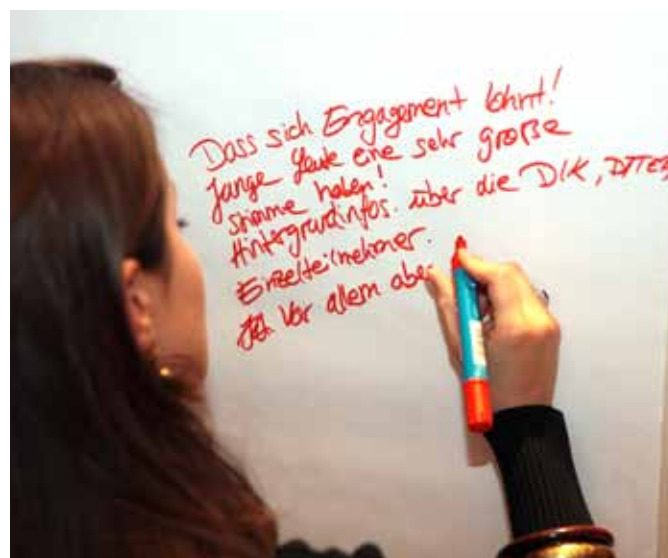 Dass sich Engagement lohnt!
Junge Leute eine sehr große
Stimme haben!
Hintergrundinfos. über die DIK,
Einzelteilnehmer.
Vor allem aber